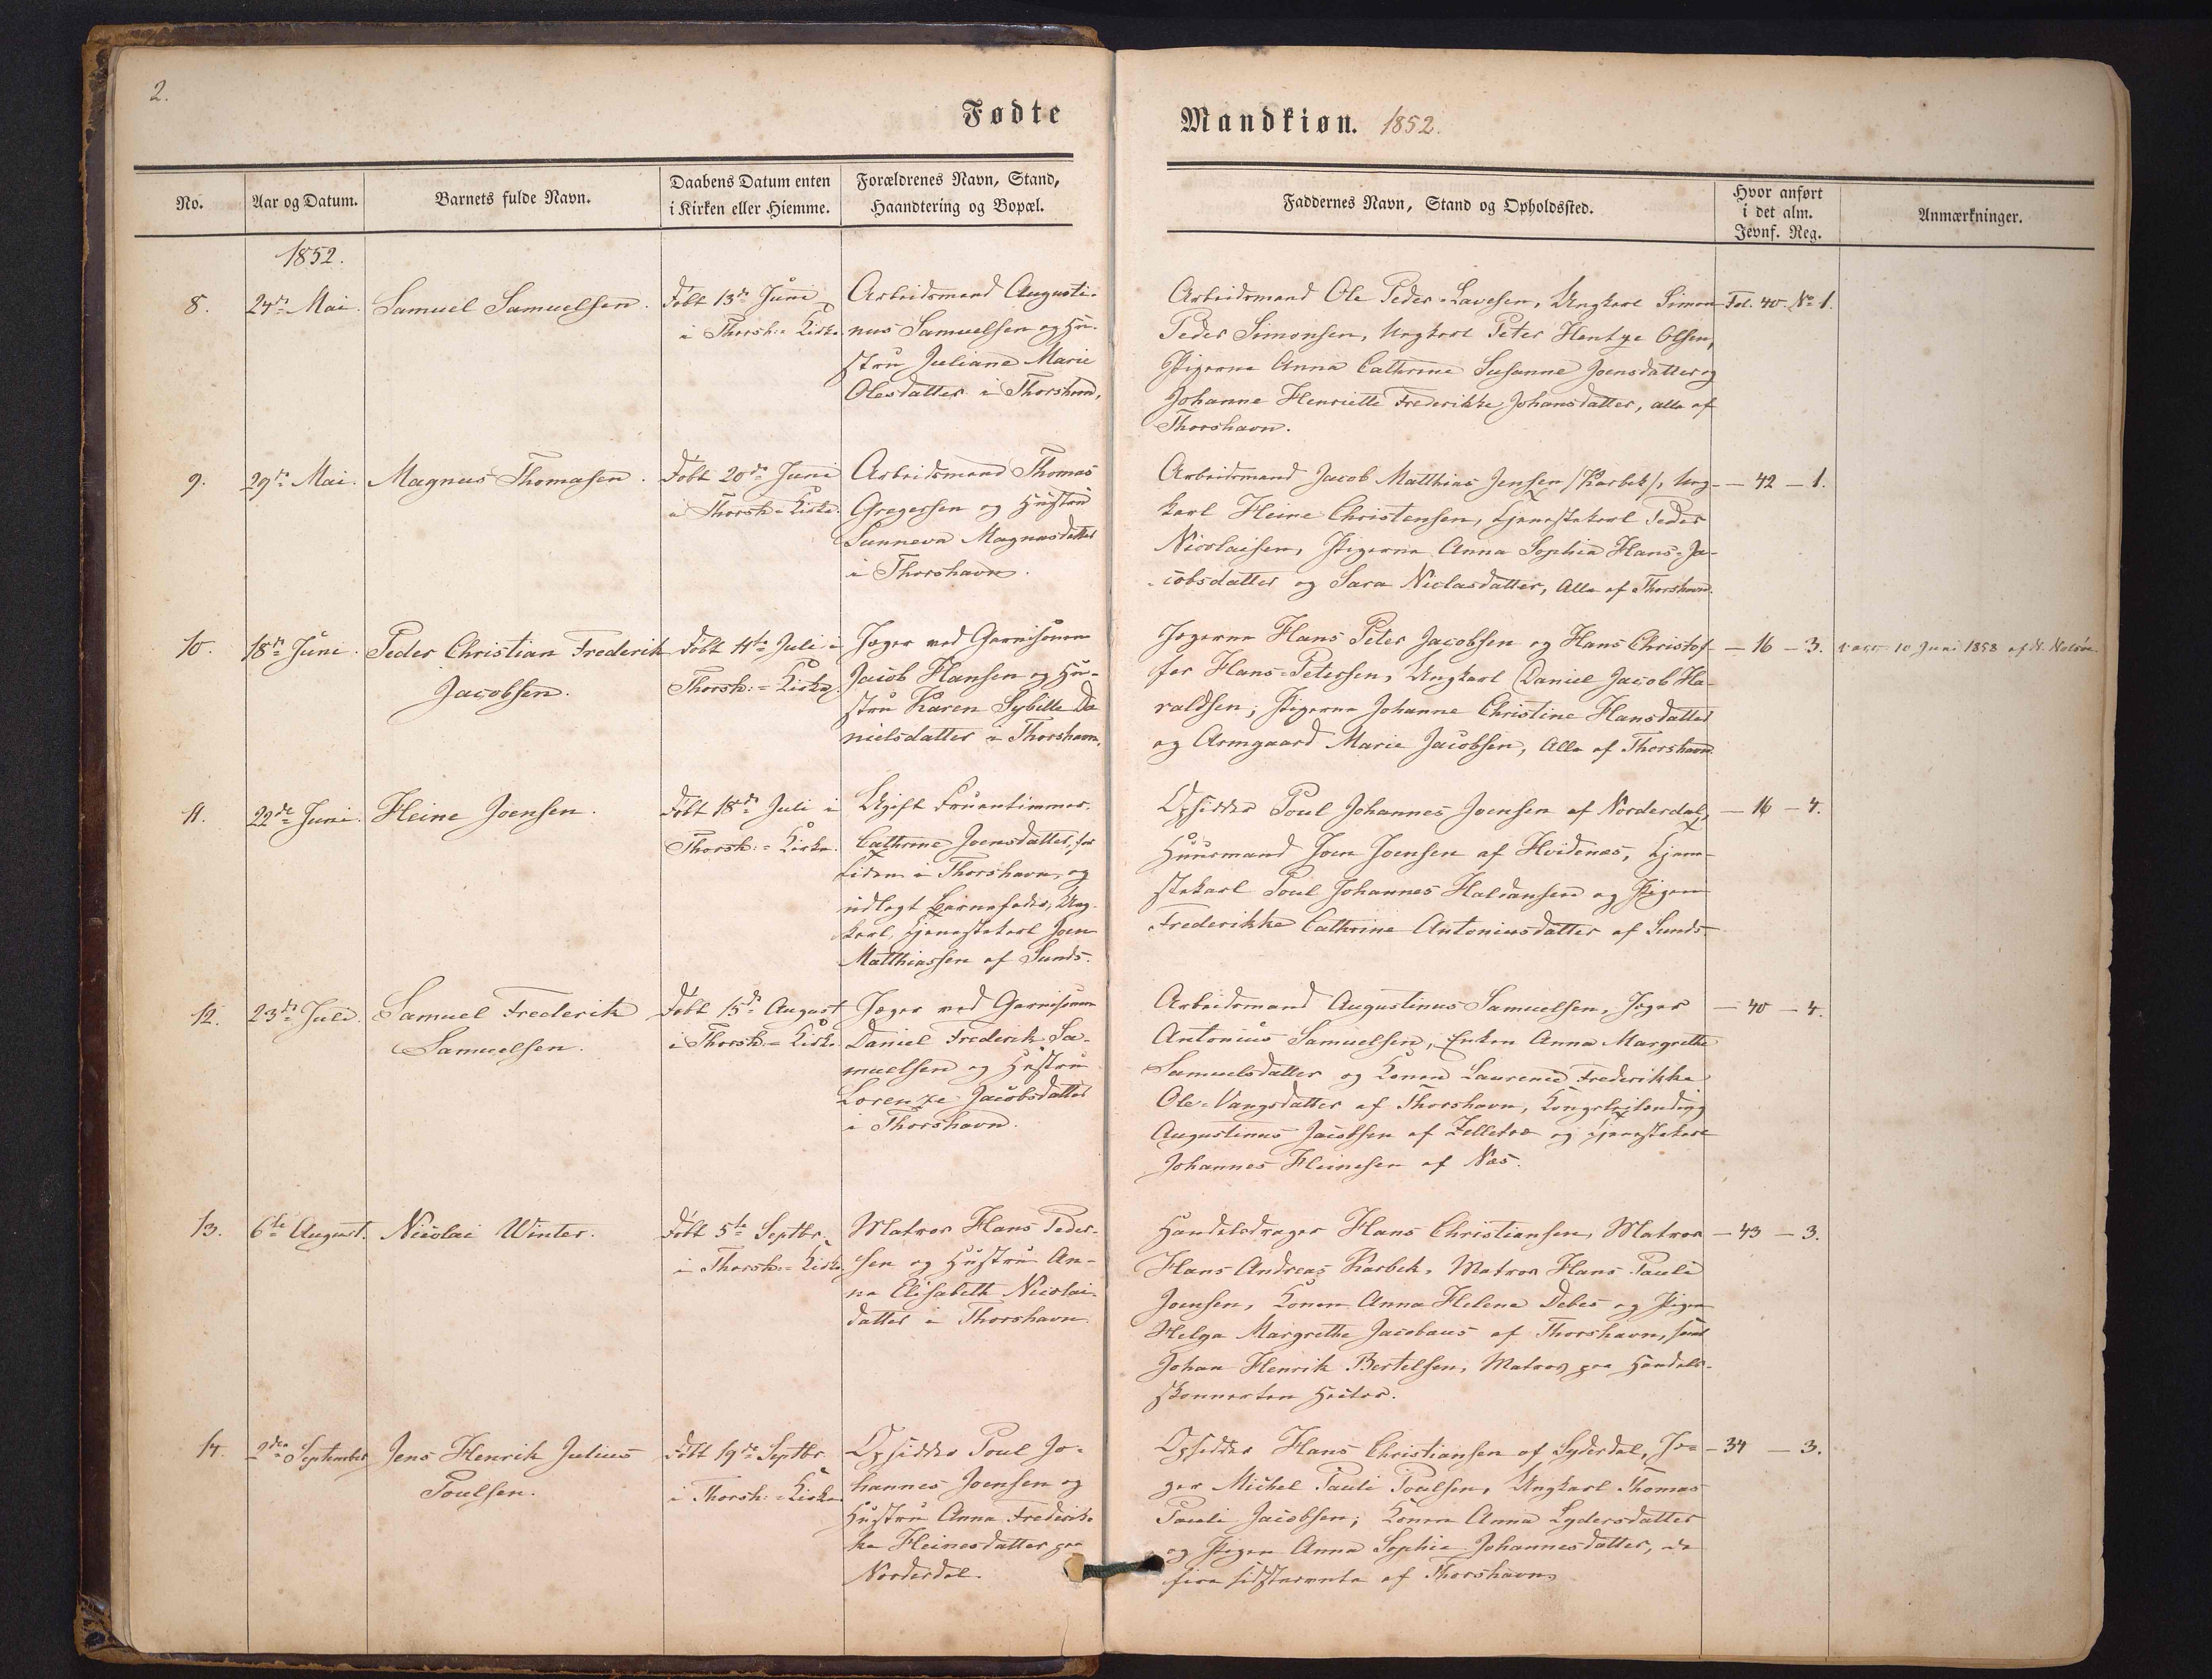 2.
Fødte
No.
Aar og Datum.
Barnets fulde Navn.
Daabens Datum enten
i Kirken eller Hiemme.
Forældrenes Navn, Stand,
Haandtering og Bopæl.
1852.
8.
24de Mai.
Samuel Samuelsen.
Døbt 13de Juni
i Thorsh: Kirke
Arbeidsmand Augusti-
nus Samuelsen og Hu-
stru Juliane Marie
Olesdatter i Thorshavn.
9.
29de Mai.
Magnus Thomasen.
Døbt 20de Juni
i Thorsh: Kirke.
Arbeidsmand Thomas
Gregersen og Hustru
Sunneva Magnusdatter
i Thorshavn.
10.
18de Juni.
Peder Christian Frederik
Jacobsen.
Døbt 11te Juli i
Thorsh: Kirke
Jæger ved Garnisonen
Jacob Hansen og Hu-
stru Karen Sybille Da
nielsdatter i Thorshavn.
11.
22de Juni.
Heine Joensen.
Døbt 18de Juli i
Thorsh: Kirke.
Ugift Fruentimmer.
Cathrine Joensdatter, for
tiden i Thorshavn, og
udlagt Barnefader, Ung-
karl, Tjenestekarl Joen
Matthiassen af Sunds.
12.
23de Juli.
Samuel Frederik
Samuelsen.
Døbt 15de August
i Thorsh: Kirke
Jæger ved Garnisonen
Daniel Frederik Sa-
muelsen og Hustru
Lorenze Jacobsdatter
i Thorshavn.
13.
6te August.
Nicolai Winter.
Døbt 5te Septbr.
i Thorsh: Kirke
Matros Hans Peder-
sen og Hustru An-
na Elisabeth Nicolai-
datter i Thorshavn.
14.
2den September
Jens Henrik Julius
Poulsen.
Døbt 19de Septbr.
i Thorsh: Kirke
Opsidder Poul Jo-
hannes Joensen og
Hustru Anna Frederik-
ke Heinesdatter paa
Norderdal.
Mandkiøn. 1852.
Faddernes Navn, Stand og Opholdssted.
Hvor anført
i det alm.
Jevnf. Reg.
Anmærkninger.
Arbeidsmand Ole Peder Lavesen, Ungkarl Simon
Peder Simonsen, Ungkarl Peter Hentze Olsen,
Pigerne Anna Cathrine Susanne Joensdatter og
Johanne Henriette Frederikke Johansdatter, alle af
Thorshavn.
Fol. 40. No 1.
Arbeidsmand Jacob Matthias Jensen /Karbek/, Ung-
karl Heine Christensen, Tjenestekarl Peder
Nicolaisen, Pigerne Anna Sophia Hans-Ja-
cobsdatter og Sara Niclasdatter, Alle af Thorshavn.
— 42 — 1.
Jægerne Hans Peter Jacobsen og Hans Christof-
fer Hans-Petersen, Ungkarl Daniel Jacob Ha-
raldsen, Pigerne Johanne Christine Hansdatter
og Armgaard Marie Jacobsen, Alle af Thorshavn.
— 16 — 3.
vacc. 10 Juni 1858 af N. Nolsøe
Opsidder Poul Johannes Joensen af Norderdal,
Huusmand Joen Joensen af Hvidenæs, Tjene-
stekarl Poul Johannes Haldansen og Pigen
Frederikke Cathrine Antoniusdatter af Sunds.
— 16 — 4.
Arbeidsmand Augustinus Samuelsen, Jæger
Antonius Samuelsen, Enken Anna Margrethe
Samuelsdatter og Konen Laurence Frederikke
Ole-Vangsdatter af Thorshavn,
Augustinus Jacobsen af Zelletræ og Tjenestekarl
Johannes Heinesen af Næs.
— 40 — 4.
Handelsdrager Hans Christiansen, Matros
Hans Andreas Karbek, Matros Hans Pauli
Joensen, Konen Anna Helene Debes og Pigen
Helga Margrethe Jacobæus af Thorshavn, samt
Johan Henrik Bertelsen, Matros paa Handels-
skonnerten Hector.
— 43 — 3.
Opsidder Hans Christiansen af Syderdal, Jæ-
ger Michel Pauli Poulsen, Ungkarl Thomas
Pauli Jacobsen; Konen Anna Lydersdatter
og Pigen Anna Sophie Johannesdatter, de
fire sidstnævnte af Thorshavn.
— 34 — 3.